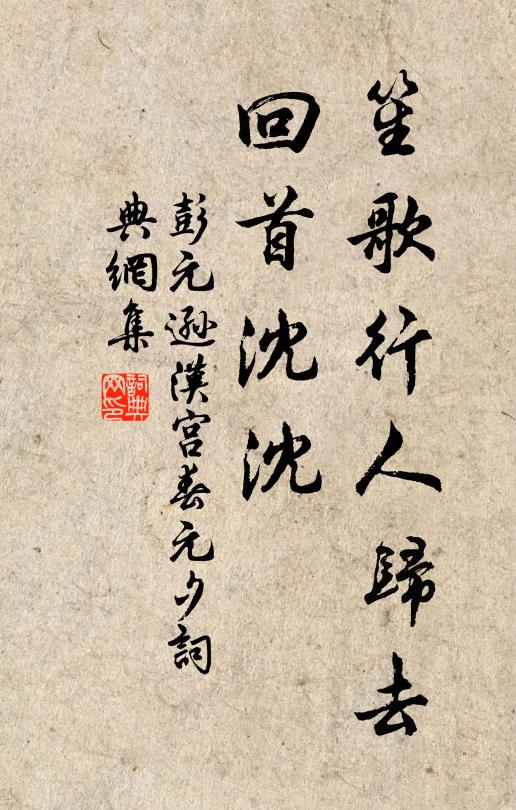 笙歌行人歸去
回首沈沈
彭元遜漢宮春元夕詞
典網集
詞典
网印